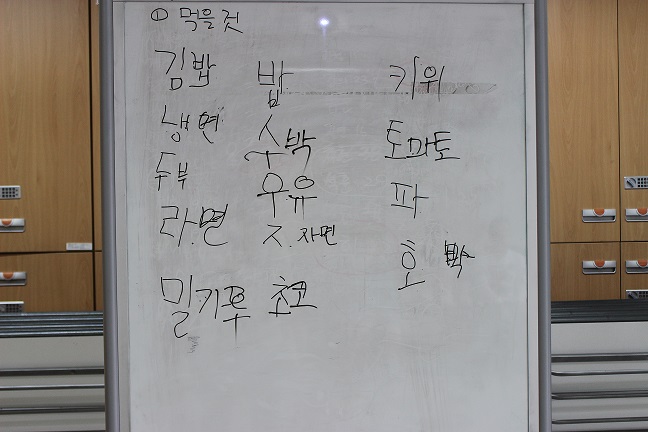 ① 먹을 것
김밥 밥 키위
냉면 수박 토마토
두부 우유 파
라면 자면 호박
밀가루 초코